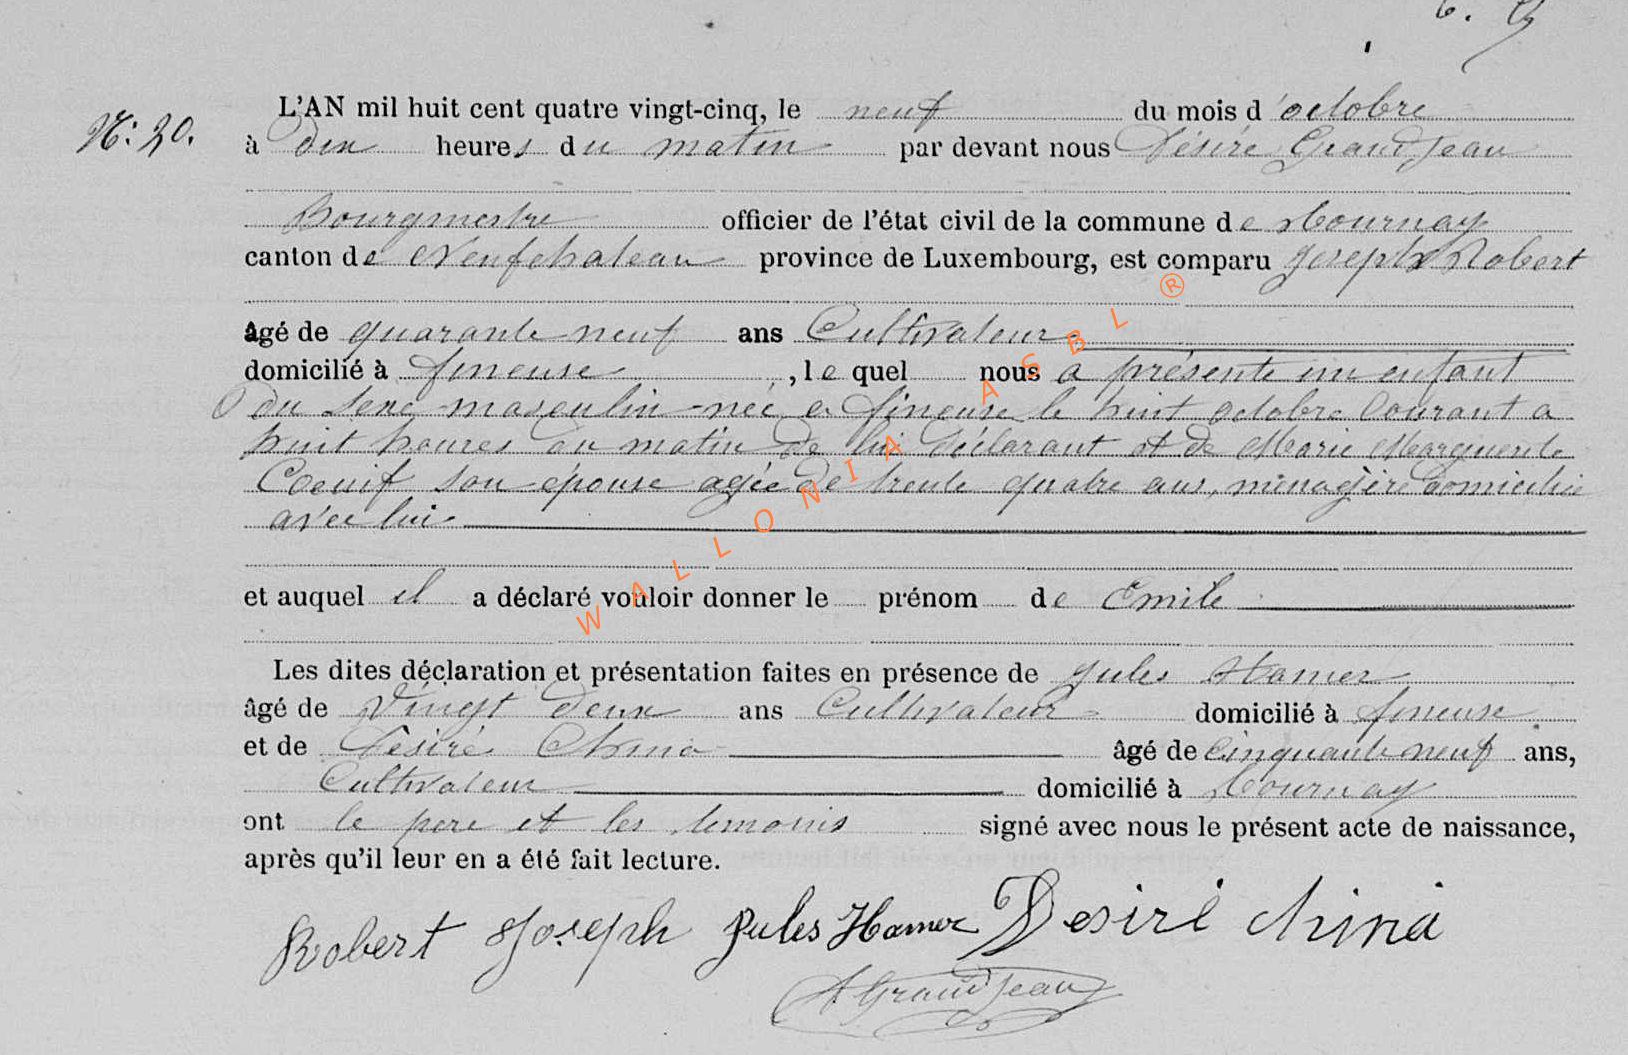 N: 20.
L'AN mil huit cent quatre vingt-cinq, le neuf du mois d'octobre
à dix heures du matin par devant nous Désiré Grandjean
Bourgmestre officier de l'état civil de la commune de Tournay
canton de Neufchateau province de Luxembourg, est comparu Joseph Robert
âgé de quarante neuf ans Cultivateur
domicilié à fineuse, le quel nous a présenté un enfant
du sexe masculin né à fineuse le huit octobre courant a
huit heures du matin de lui déclarant et de Marie Marguerite
son épouse agée de trente quatre ans, ménagère domiciliée
avec lui.
et auquel il a déclaré vouloir donner le prénom de Emile
Les dites déclaration et présentation faites en présence de Jules Hamer
âgé de Vingt deux ans Cultivateur domicilié à fineuse
et de Désiré China âgé de cinquante neuf ans,
Cultivateur domicilié à Tournay
ont le pere et les temoins signé avec nous le présent acte de naissance,
après qu'il leur en a été fait lecture.
Robert Joseph Jules Hamer Desiré china
Grandjean
WALLONIA ASBL ®